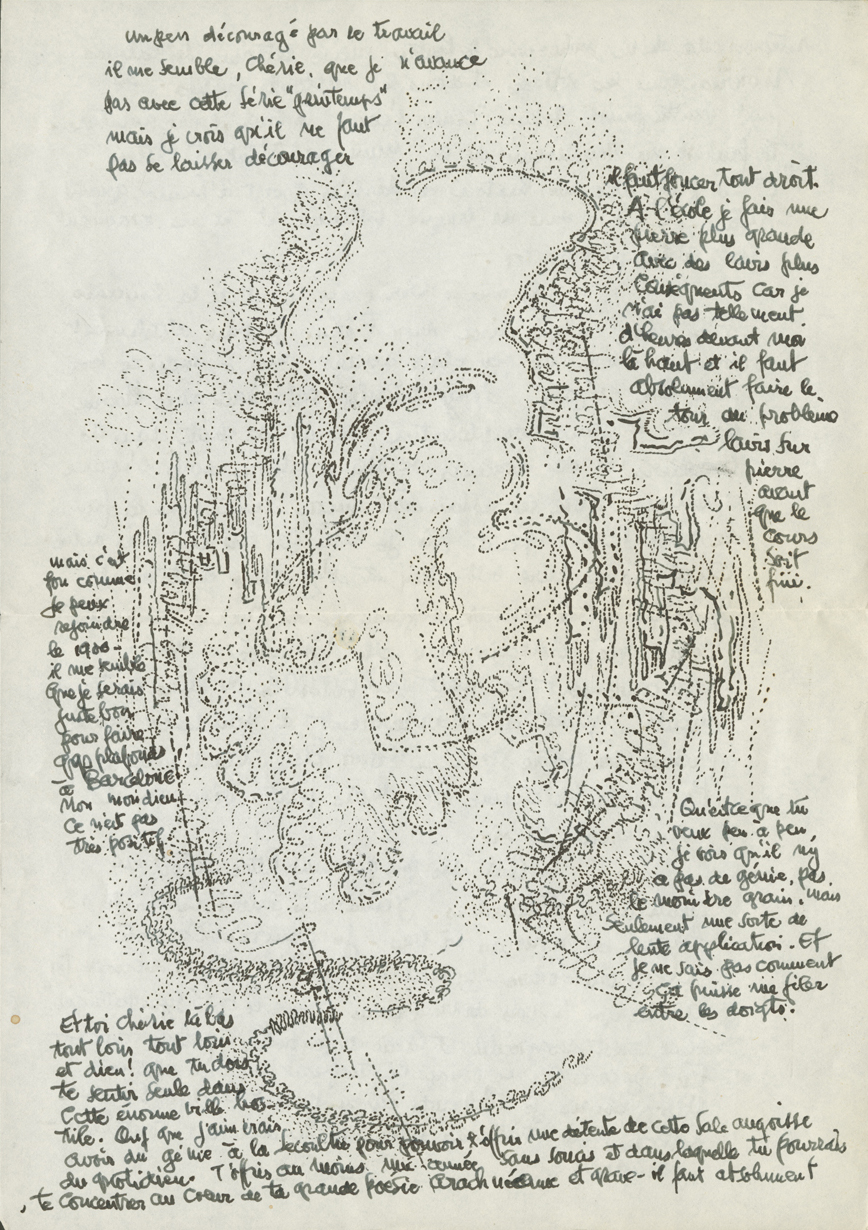 un peu découragé par le travail
il me semble, Chérie, que je n'avance
pas avec cette série "printemps"
mais je crois qu'il ne faut
pas se laisser décourager
il faut foncer tout droit.
A l'école je fais une
pierre plus grande
avec des lavis plus
Conséquents car je
n'ai pas tellement
d'heures devant moi
là haut et il faut
absolument faire le
tour du problème
lavis sur
pierre
avant
que le
Cours
soit
fini.
mais c'est
fou comme
je peux
rejoindre
le 1900-
il me semble
que je serais
juste bon
pour faire
plafonds
à Barcelone
Mon mon dieu
Ce n'est pas
très positif.
Qu'est ce que tu
veux peu a peu,
je vois qu'il n'y
a pas de génie, pas
le moindre grain, mais
Seulement une sorte de
lente application. Et
je ne sais pas comment
ça puisse me filer
entre les doigts.
Et toi Chérie là bas
tout loin tout loin
et dieu! que tu dois
te sentir seule dans
Cette énorme ville hos-
tile. que j'aimerais
avoir du génie à la pour pouvoir t'offrir une détente de cette sale angoisse
du quotidien. T'offrir au moins une année sans soucis et dans laquelle tu pourrais
te concentrer au Coeur de ta grande poésie arachnéenne et grave - il faut absolument